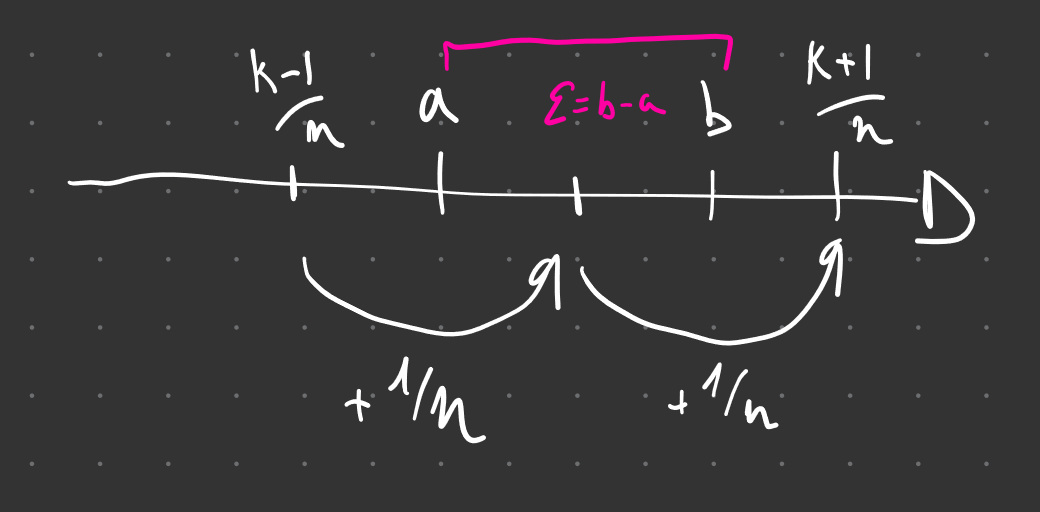 k-1/n a ε=b-a b k+1/n
+ 1/n + 1/n